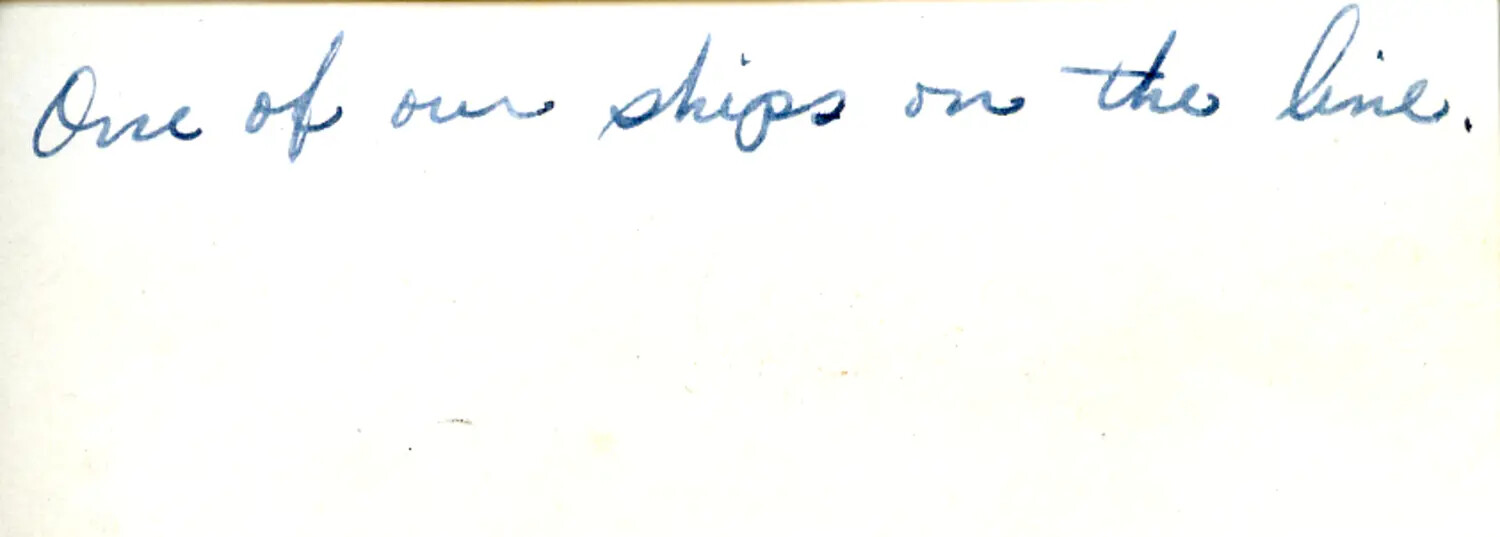 One of our ships on the line.